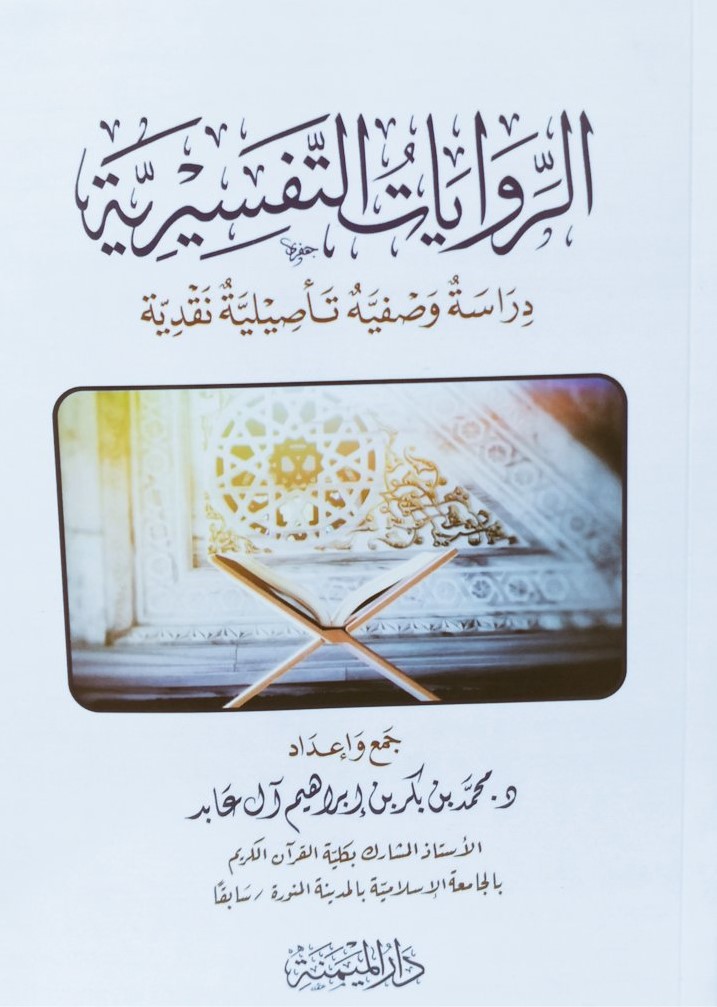 الرِّوَايَاتُ التَّفْسِيْرِيَّة
دِرَاسَةٌ وَصْفيَّةٌ تَأصِيْليَّةٌ نَقْدِيّة
جَمع وَإعدَاد
د. محمَّد بن بكر بن إبراهيم آل عَابد
الأستاذ المشارك بكليّة القرآن الكريم
بالجامعة الإسلاميّة بالمدينة المنورة / سَابقًا
دَارُ المَيْمَنَةِ